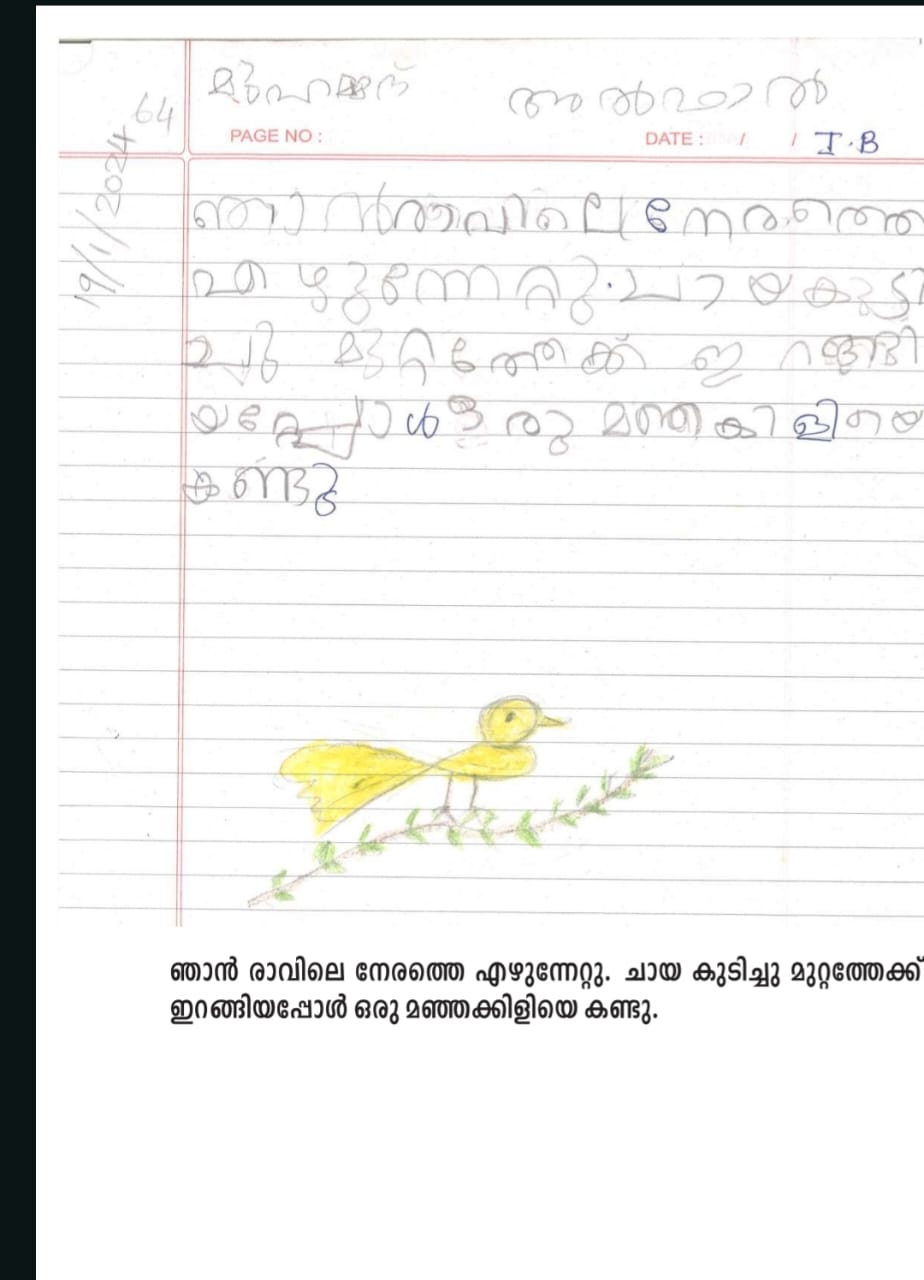 മുഹമ്മദ് അൽഫാൽ
64
PAGE NO :
DATE : / / I.B
19/1/2024
ഞാൻ രാവിലെ നേരത്തെ
എഴുന്നേറ്റു. ചായ കുടി
ച്ചു മുറ്റത്തേക്ക് ഇറങ്ങി
യപ്പോൾ ഒരു മഞ്ഞകിളിയെ
കണ്ടു
ഞാൻ രാവിലെ നേരത്തെ എഴുന്നേറ്റു. ചായ കുടിച്ചു മുറ്റത്തേക്ക്
ഇറങ്ങിയപ്പോൾ ഒരു മഞ്ഞക്കിളിയെ കണ്ടു.